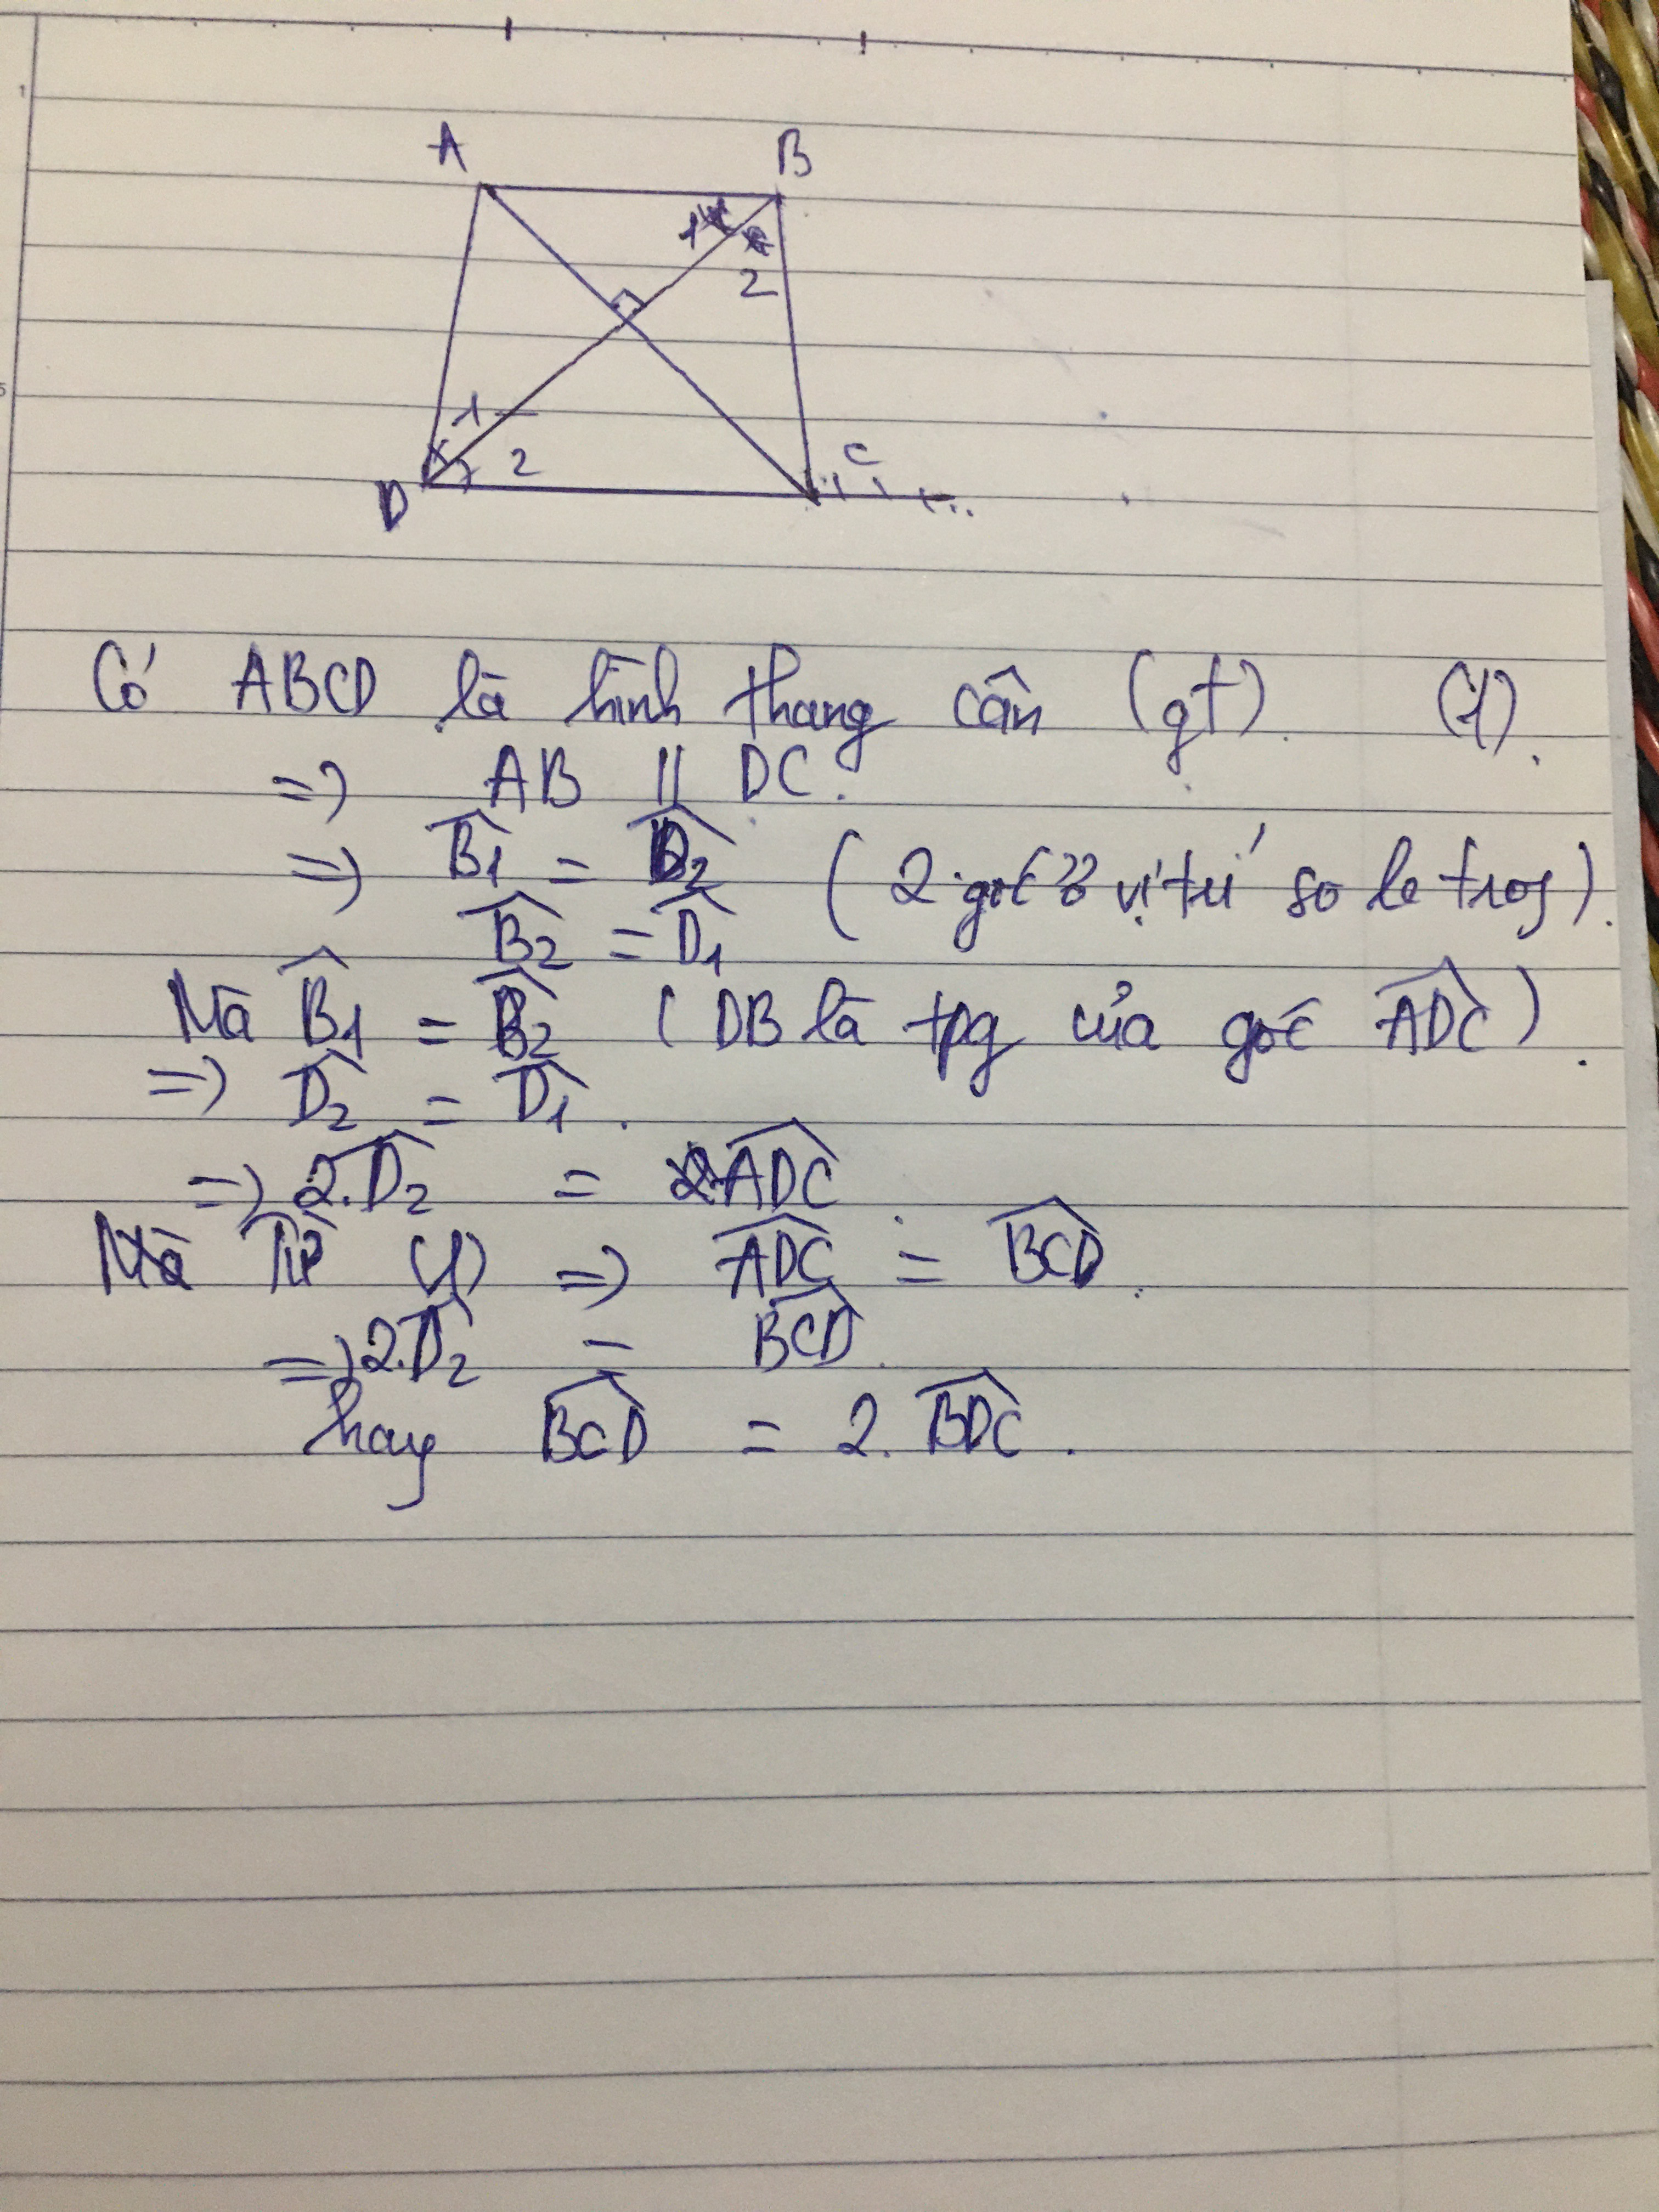 A B
1
2
1
2
D
C
Có ABCD là hình thang cân (gt). (1).
=> AB // DC.
=> B̂1 = D̂2 (2 góc ở vị trí so le trog).
B̂2 = D̂1
Mà B̂1 = B̂2 (DB là tpg của góc ADC).
=> D̂2 = D̂1.
=> 2.D̂2 = ADC
Từ (1) => ADC = BCD.
=> 2.D̂2 = BCD.
hay BCD = 2. BDC.